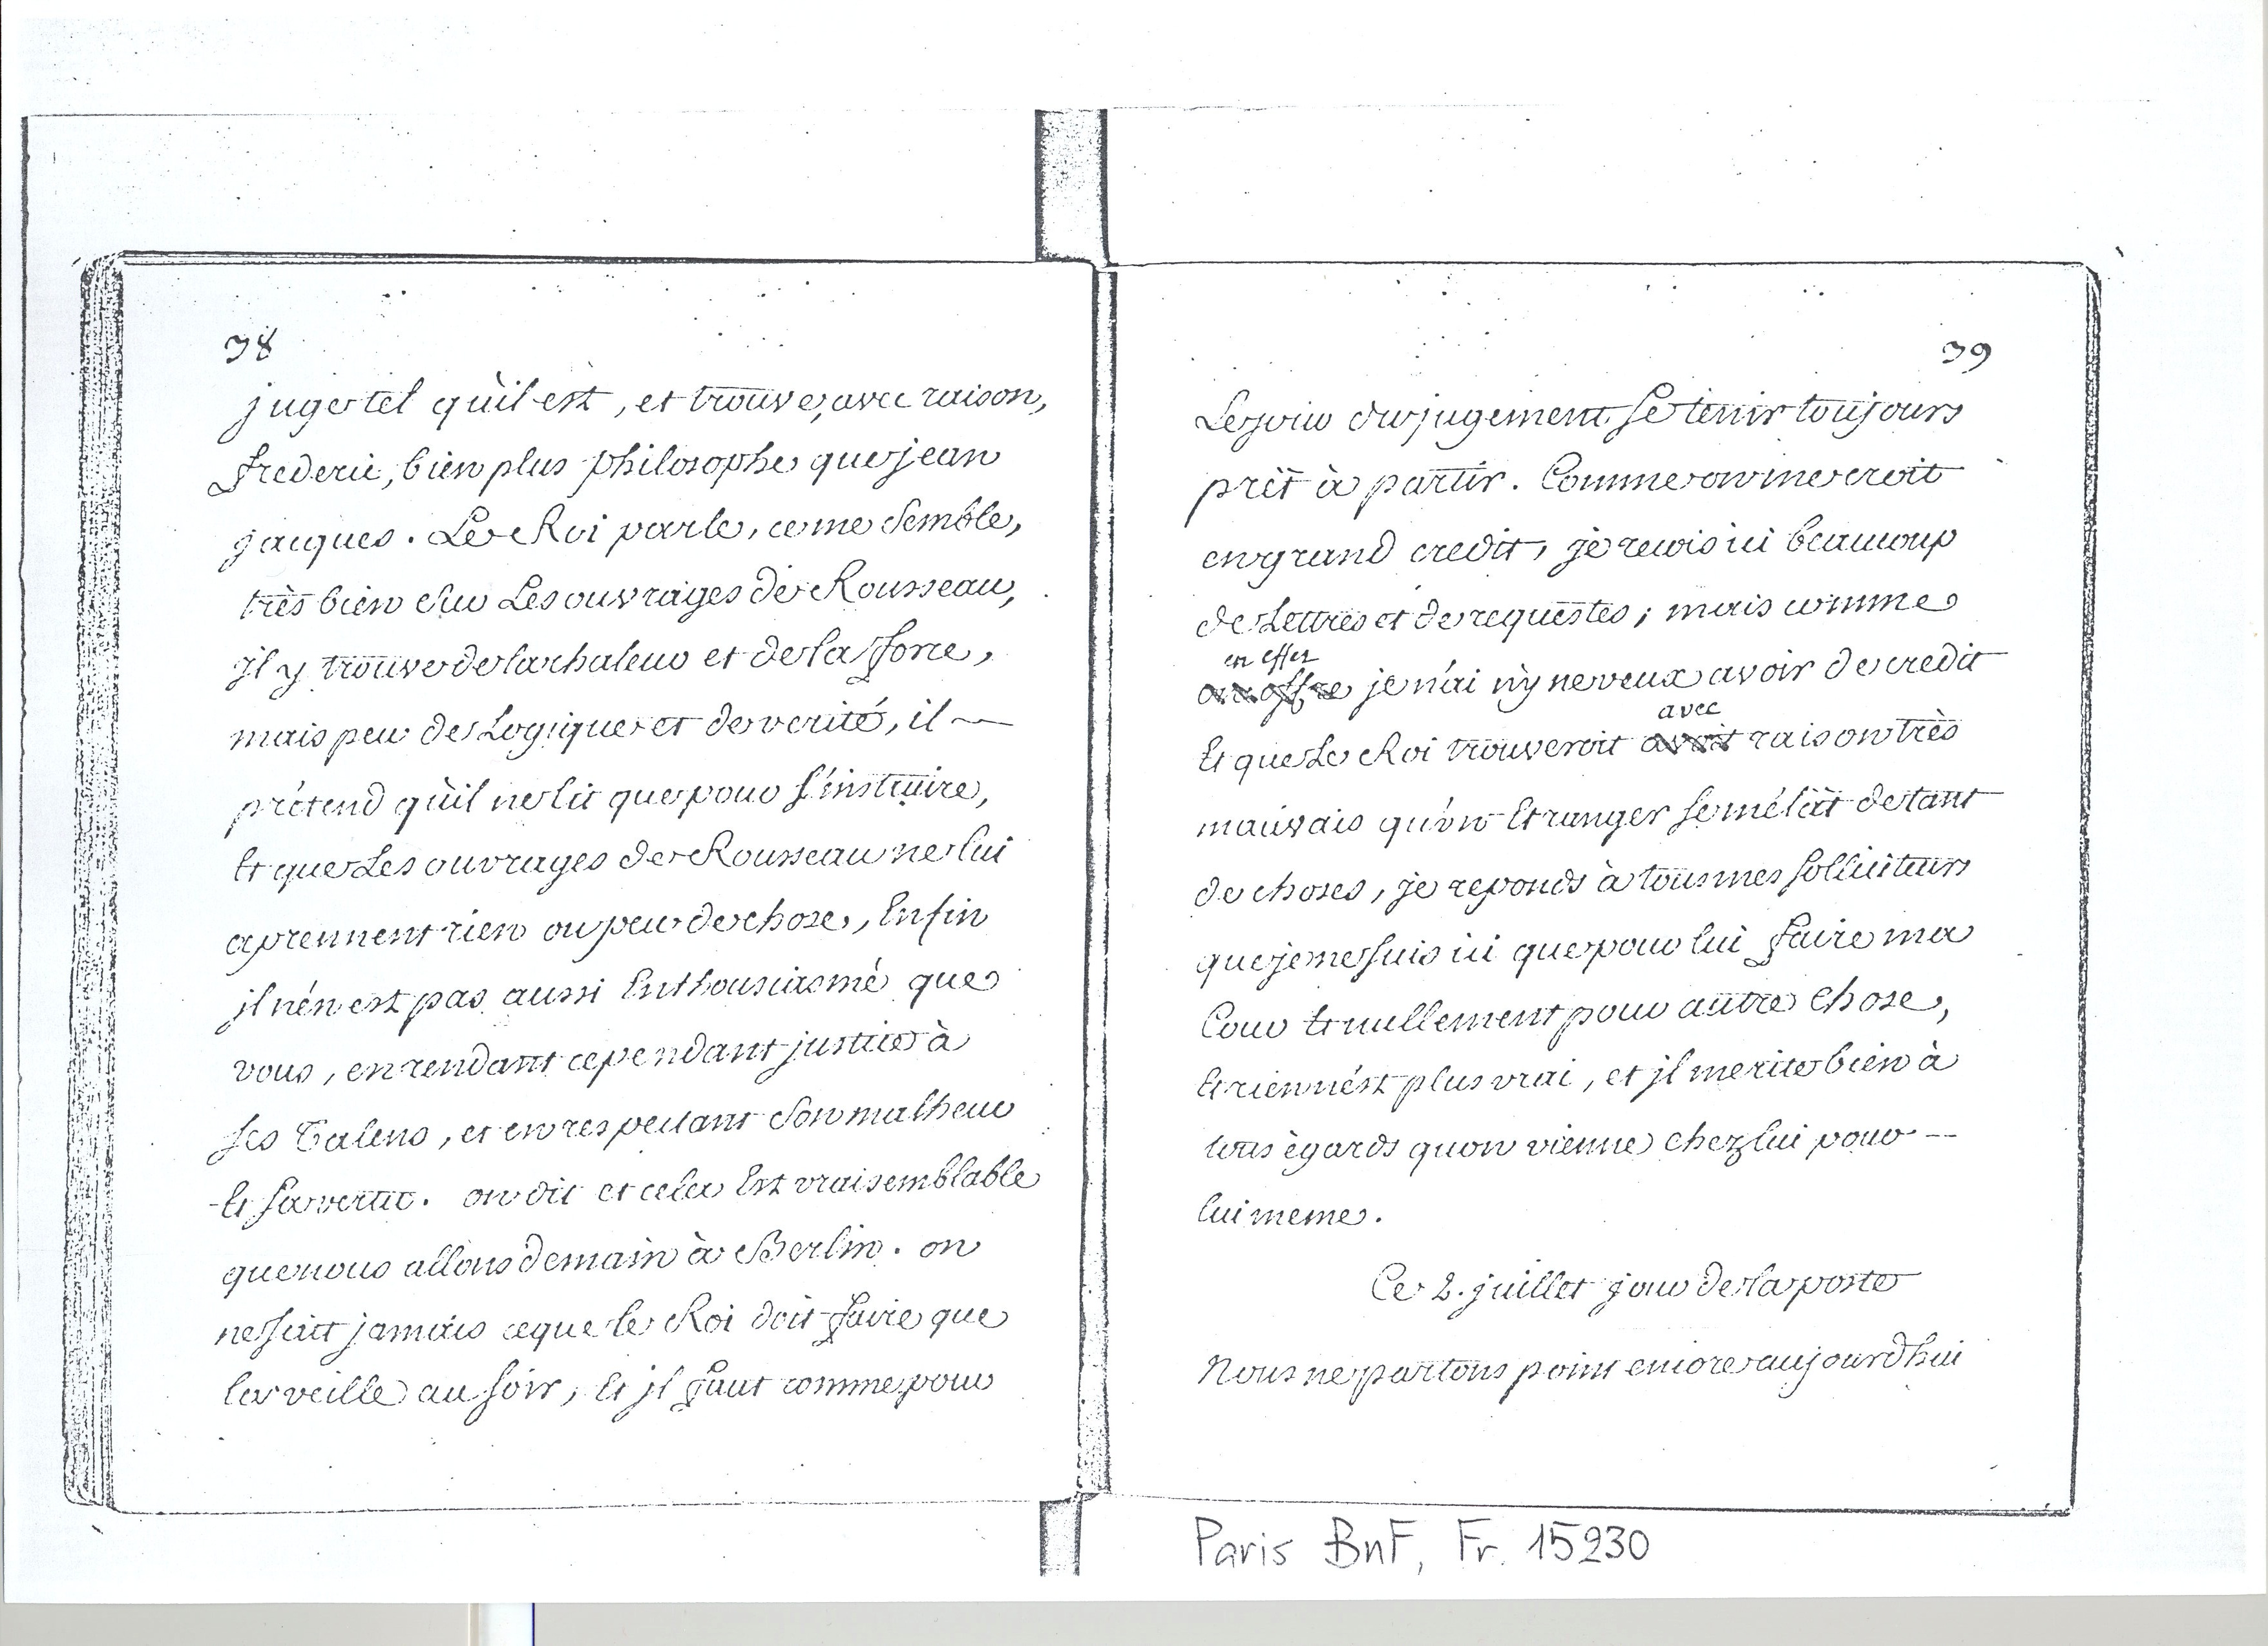 38
juge tel qu'il est, et trouve, avec raison,
frederic, bien plus philosophe que jean
jacques. Le Roi parle, ce me semble,
très bien sur Les ouvrages de Rousseau,
il y trouve de la chaleur et de la force,
mais peu de Logique et de verité, il
prétend qu'il ne lit que pour s'instruire,
Et que Les ouvrages de Rousseau ne lui
aprennent rien ou peu de chose, Enfin
il n'én est pas aussi Enthousiasmé que
vous, en rendant cependant justice à
ses Talens, et en respectant son malheur
Et sa vertu. on dit et cela Est vraisemblable
que nous allons demain à Berlin. on
ne sait jamais ce que le Roi doit faire que
la veille au soir, Et il faut comme pour
39
Le jour du jugement se tenir toujours
prêt à partir. Comme on me croit
en grand credit, je reçois ici beaucoup
de Lettres et de requestes, mais comme
en effet
je n'ai n'y ne veux avoir de credit
avec
Et que Le Roi trouveroit avoit raison très
mauvais qu'un Etranger se mélât de tant
de choses, je reponds à tous mes solliciteurs
que je ne suis ici que pour lui faire ma
Cour Et nullement pour autre chose,
Et rien n'ést plus vrai, et il merite bien à
tous ègards quon vienne chez lui pour
lui meme.
Ce 2. juillet jour de la poste
Nous ne partons point encore aujourdhui
Paris BnF, Fr. 15230